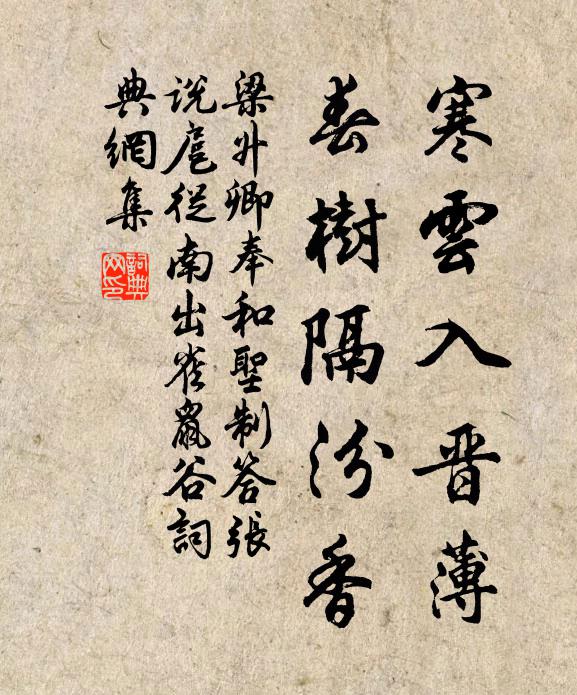 寒雲入晋薄
春樹隔汾香
梁升卿奉和聖制答張
說扈從南出雀鼠谷詞
典網集
詞典
网印